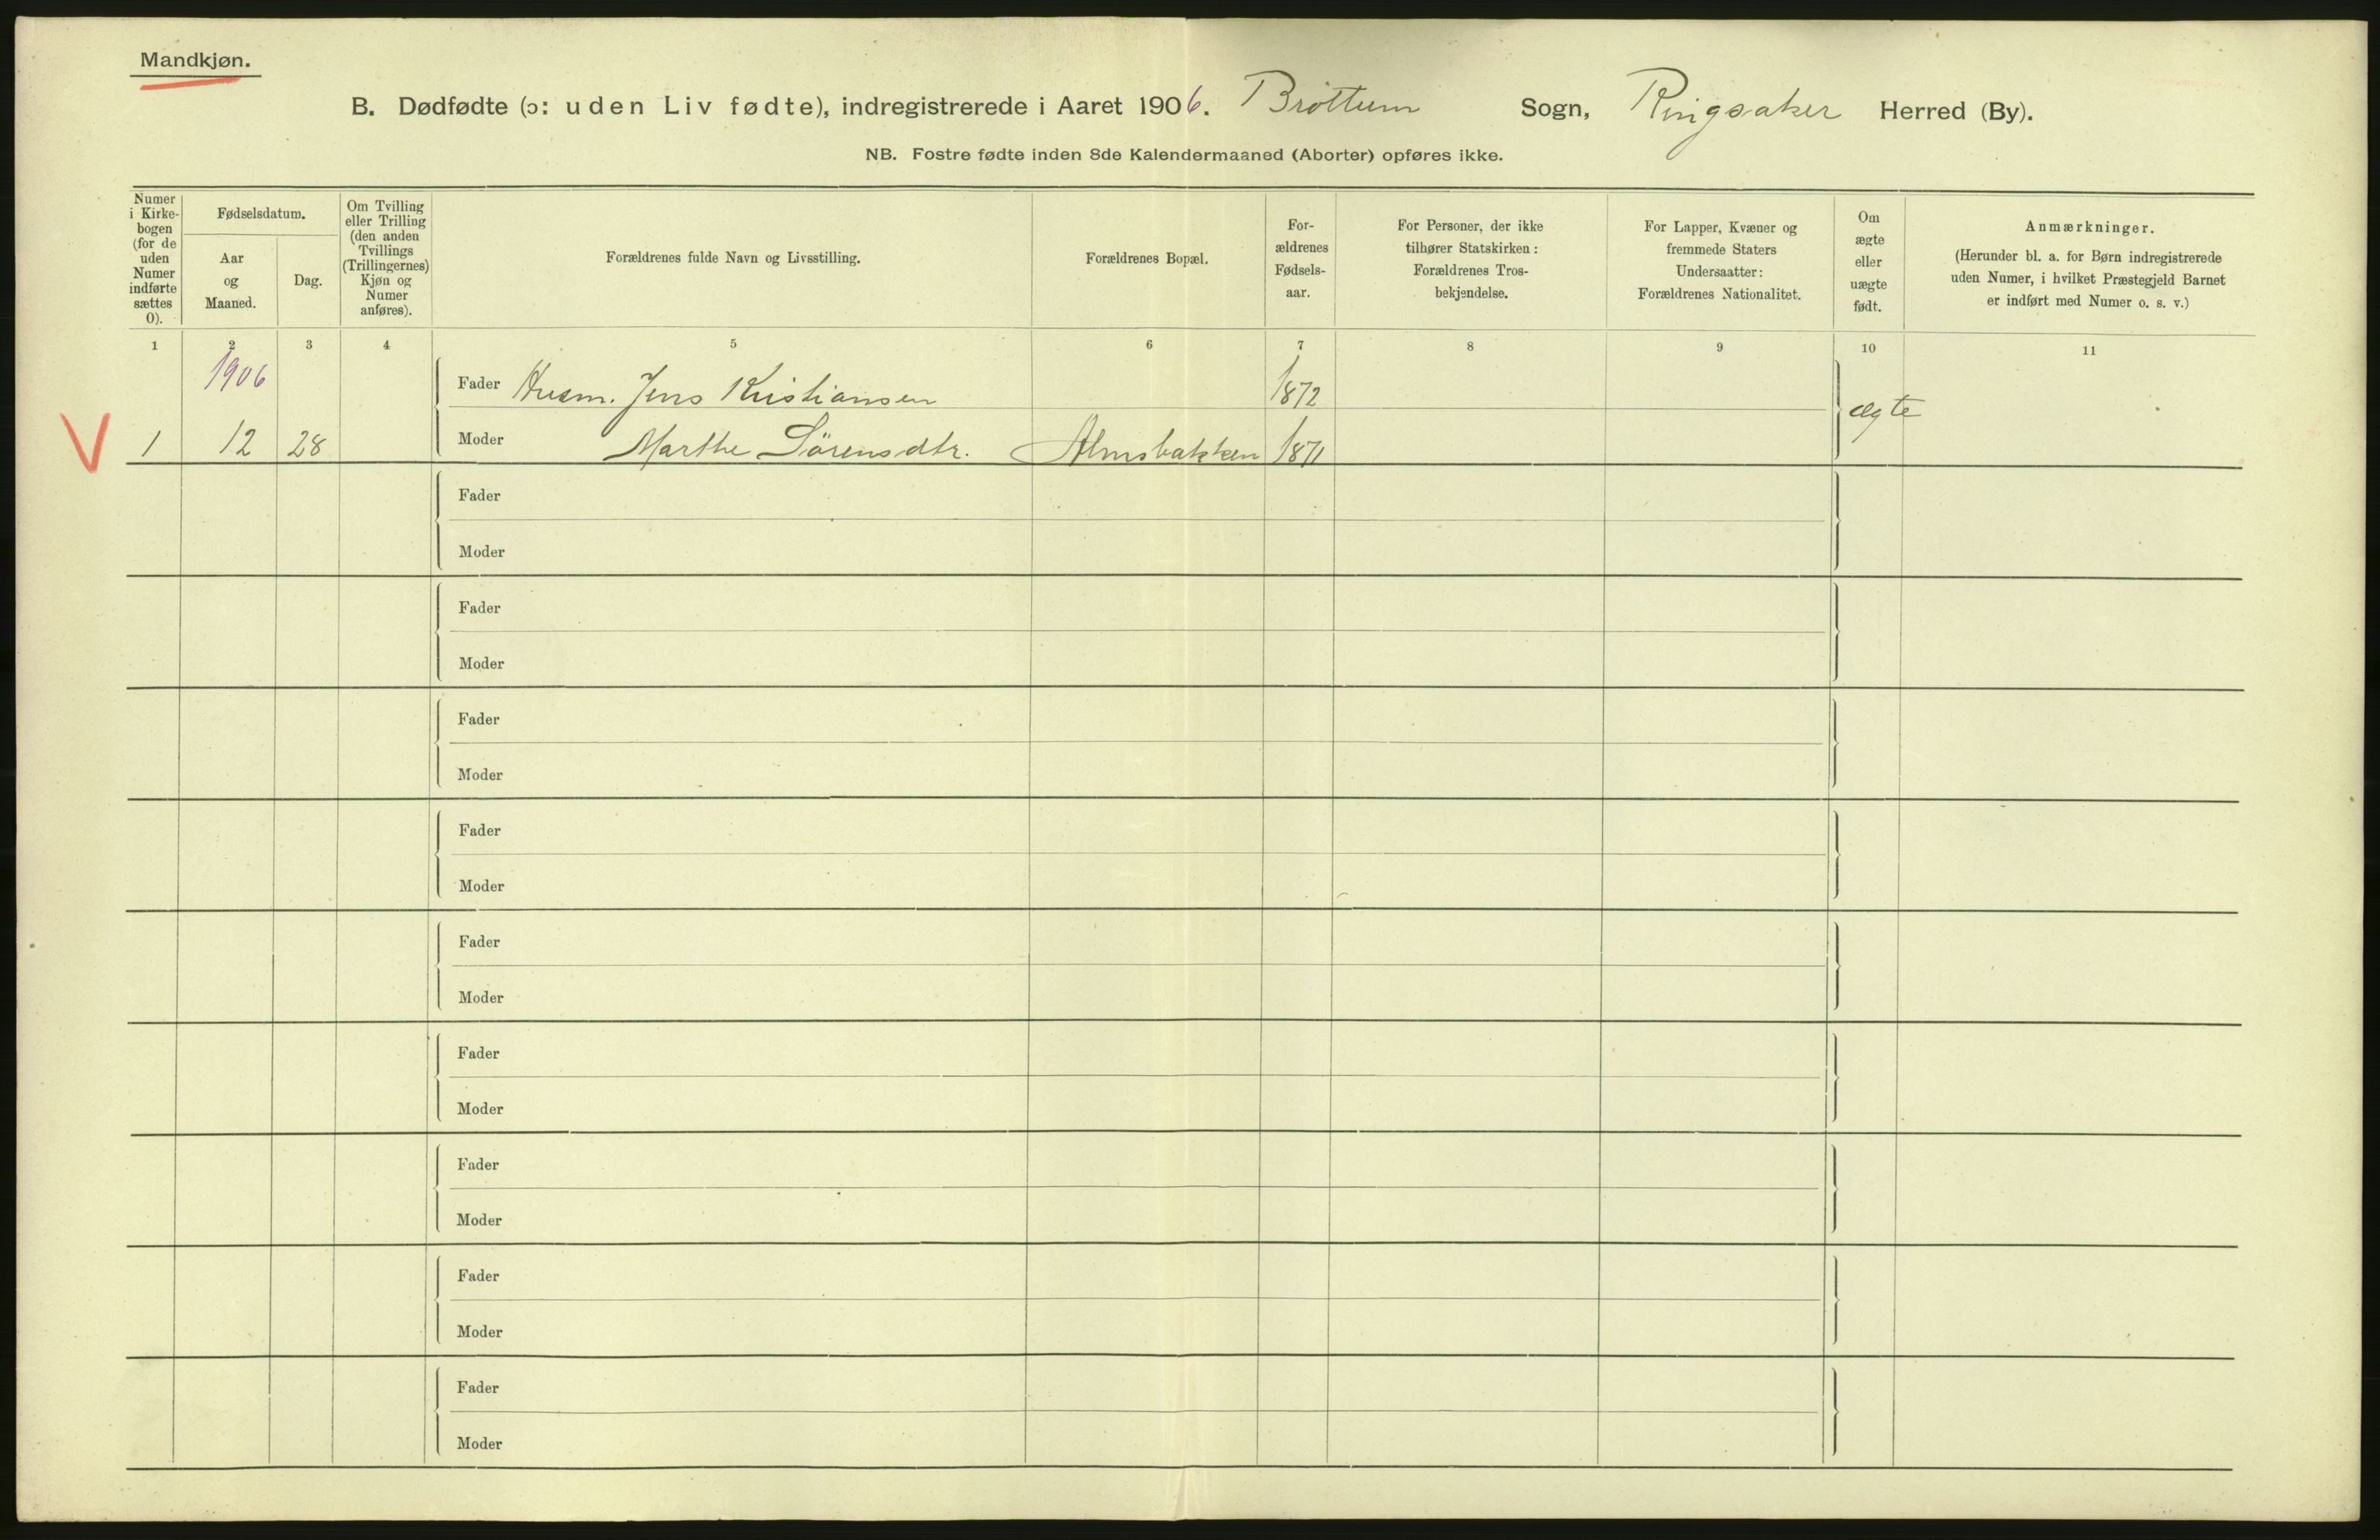 Mandkjøn.
B. Dødfødte (ɔ: uden Liv fødte), indregistrerede i Aaret 1906. Brøttum Sogn, Ringsaker Herred (By).
NB. Fostre fødte inden 8de Kalendermaaned (Aborter) opføres ikke.
Numer i Kirke-bogen (for de uden Numer indførte sættes 0).
Fødselsdatum.
Aar og Maaned.
Dag.
Om Tvilling eller Trilling (den anden Tvillings (Trillingernes) Kjøn og Numer anføres).
Forældrenes fulde Navn og Livsstilling.
Forældrenes Bopæl.
For-ældrenes Fødsels-aar.
For Personer, der ikke tilhører Statskirken: Forældrenes Tros-bekjendelse.
For Lapper, Kvæner og fremmede Staters Undersaatter: Forældrenes Nationalitet.
Om ægte eller uægte født.
Anmærkninger.
(Herunder bl. a. for Børn indregistrerede uden Numer, i hvilket Præstegjeld Barnet er indført med Numer o. s. v.)
1 2 3 4 5 6 7 8 9 10 11
1906 Fader Husm. Jens Kristiansen 1872 ægte
V 1 12 28 Moder Marthe Sörensdtr. Almsbakken 1871
Fader
Moder
Fader
Moder
Fader
Moder
Fader
Moder
Fader
Moder
Fader
Moder
Fader
Moder
Fader
Moder
Fader
Moder